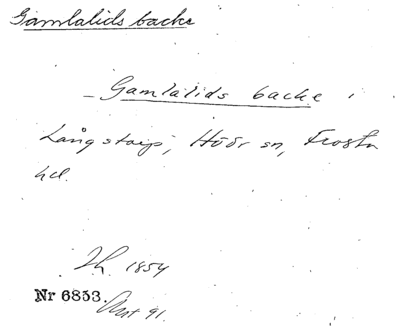 Gamlalids backe
– Gamlalids backe i
Långstorp, Höör sn, Frosta
hd.
Th. 1854
Nr 6853. Ant 91.